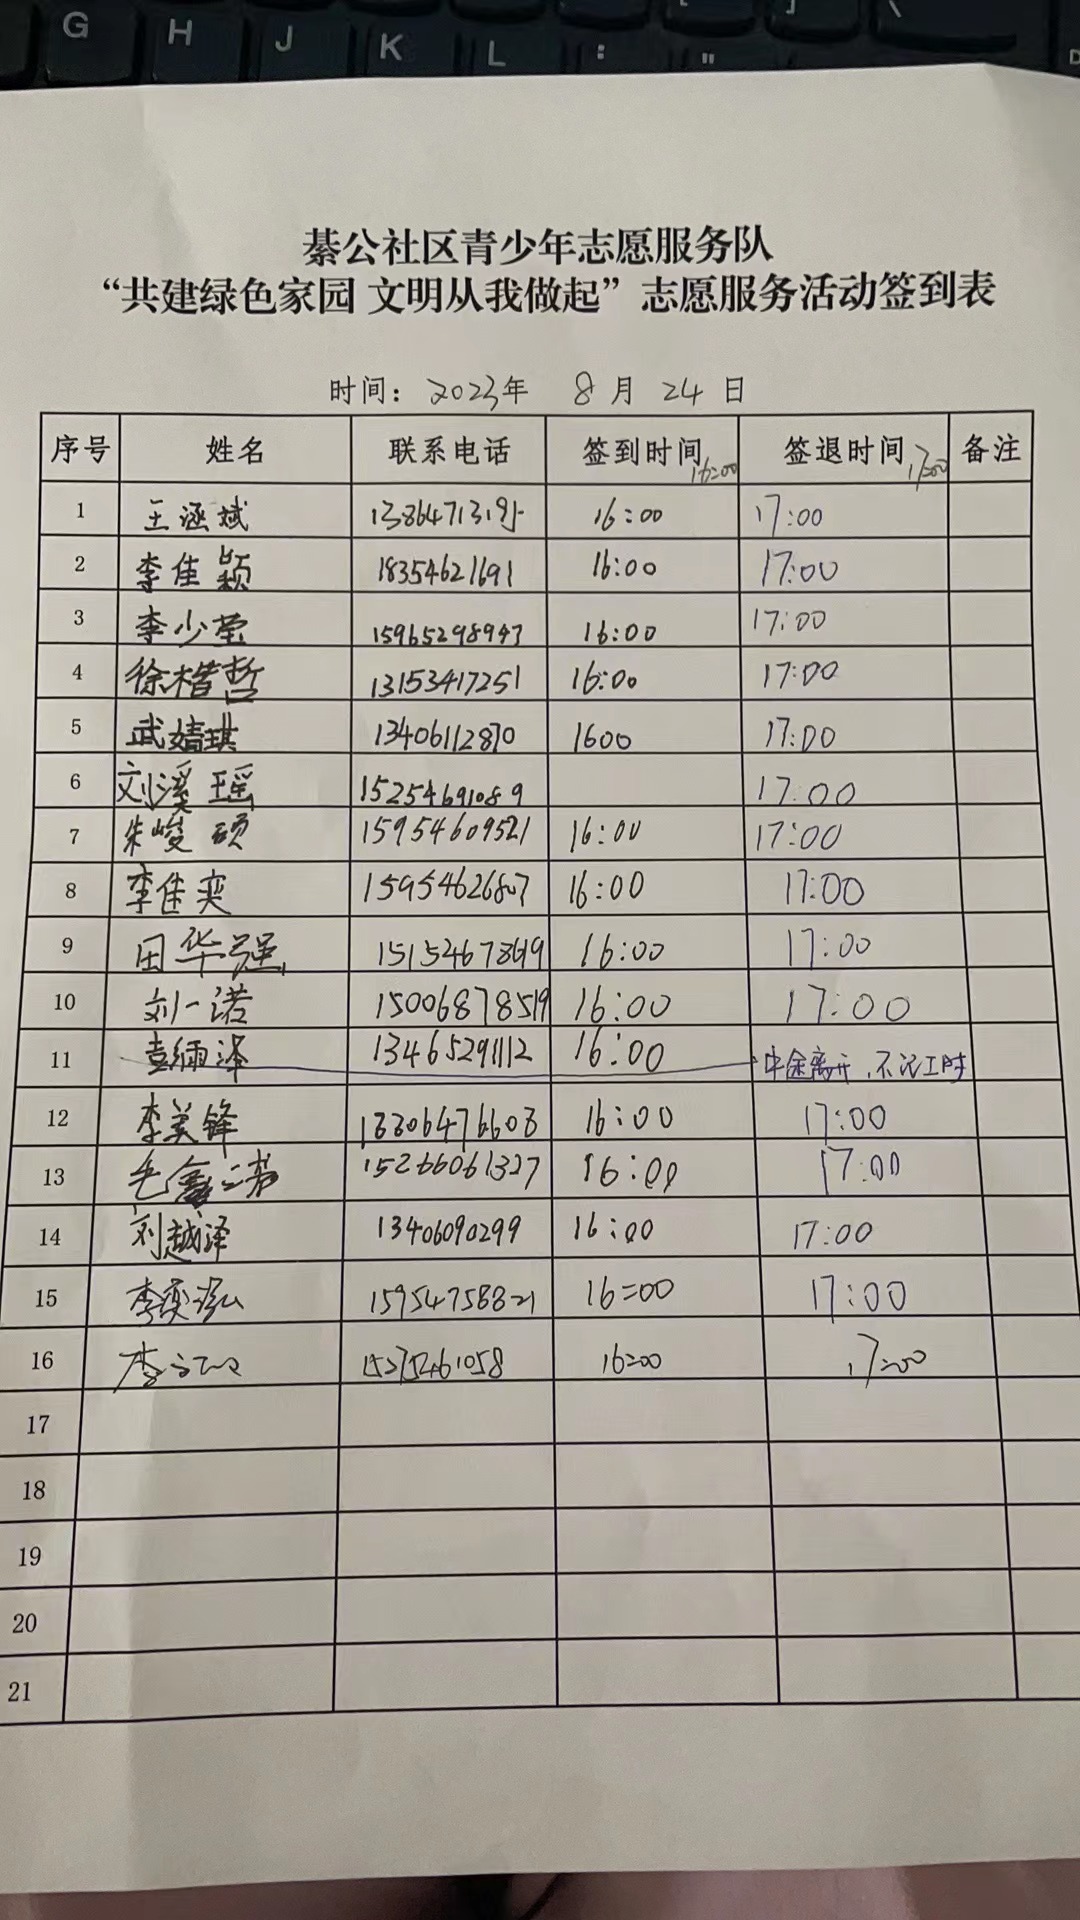 G H J K L : "
綦公社区青少年志愿服务队
“共建绿色家园 文明从我做起”志愿服务活动签到表
时间：2023年 8月 24日
序号 姓名 联系电话 签到时间 16:00 签退时间 17:00 备注
1 王涵斌 16:00 17:00
2 李佳颖 18354621691 16:00 17:00
3 李少莹 15965298947 16:00 17:00
4 徐楷哲 13153417251 16:00 17:00
5 武婧琪 13406112870 1600 17:00
6 刘溪瑶 15254691089 17:00
7 朱峻硕 15954609521 16:00 17:00
8 李佳奕 15954626807 16:00 17:00
9 田华强 16:00 17:00
10 刘一诺 15006878519 16:00 17:00
11 13465291112 16:00 中途离开，不记工时
12 李美锋 16:00 17:00
13 毛鑫 15266061327 16:00 17:00
14 刘越泽 13406090299 16:00 17:00
15 李奕泓 15954758821 16=00 17:00
16 李 15275461058 16=00 17=00
17
18
19
20
21